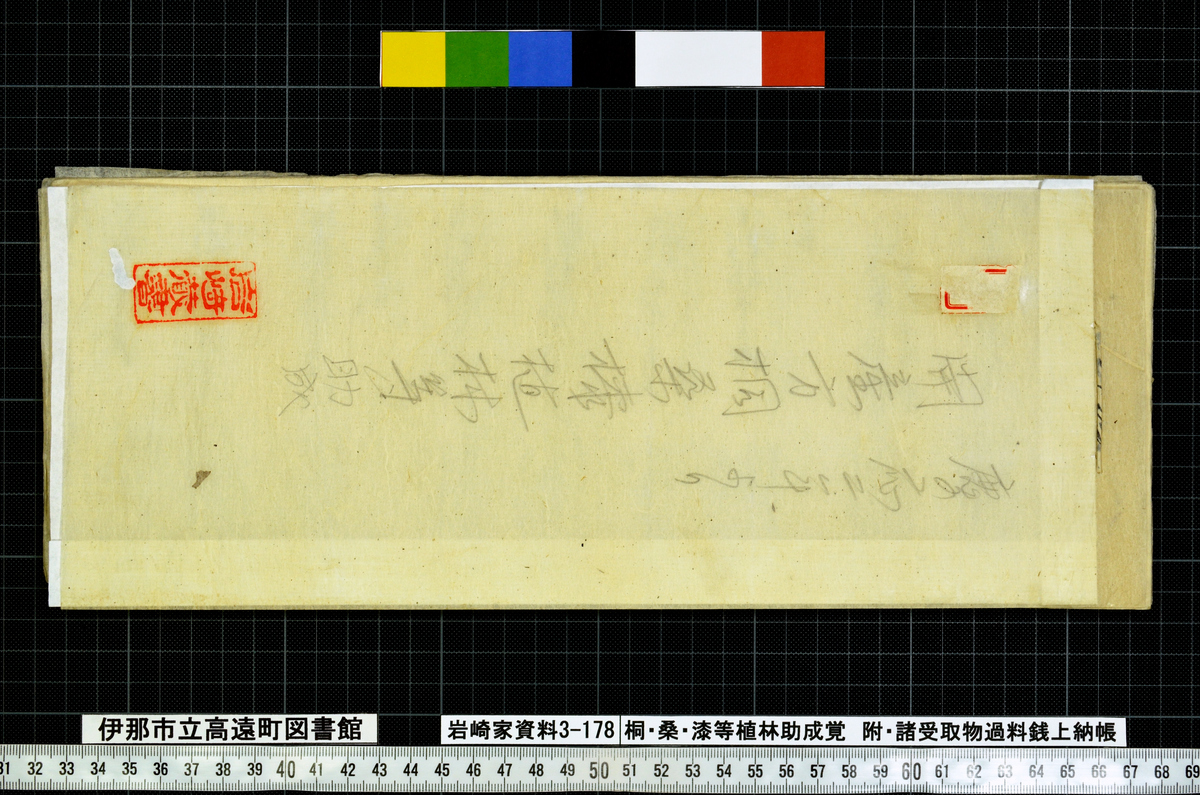 開産方桐桑漆植林等助成
岩崎蔵書
伊那市立高遠町図書館
岩崎家資料3-178
桐・桑・漆等植林助成覚 附・諸受取物過料銭上納帳
31 32 33 34 35 36 37 38 39 40 41 42 43 44 45 46 47 48 49 50 51 52 53 54 55 56 57 58 59 60 61 62 63 64 65 66 67 68 69